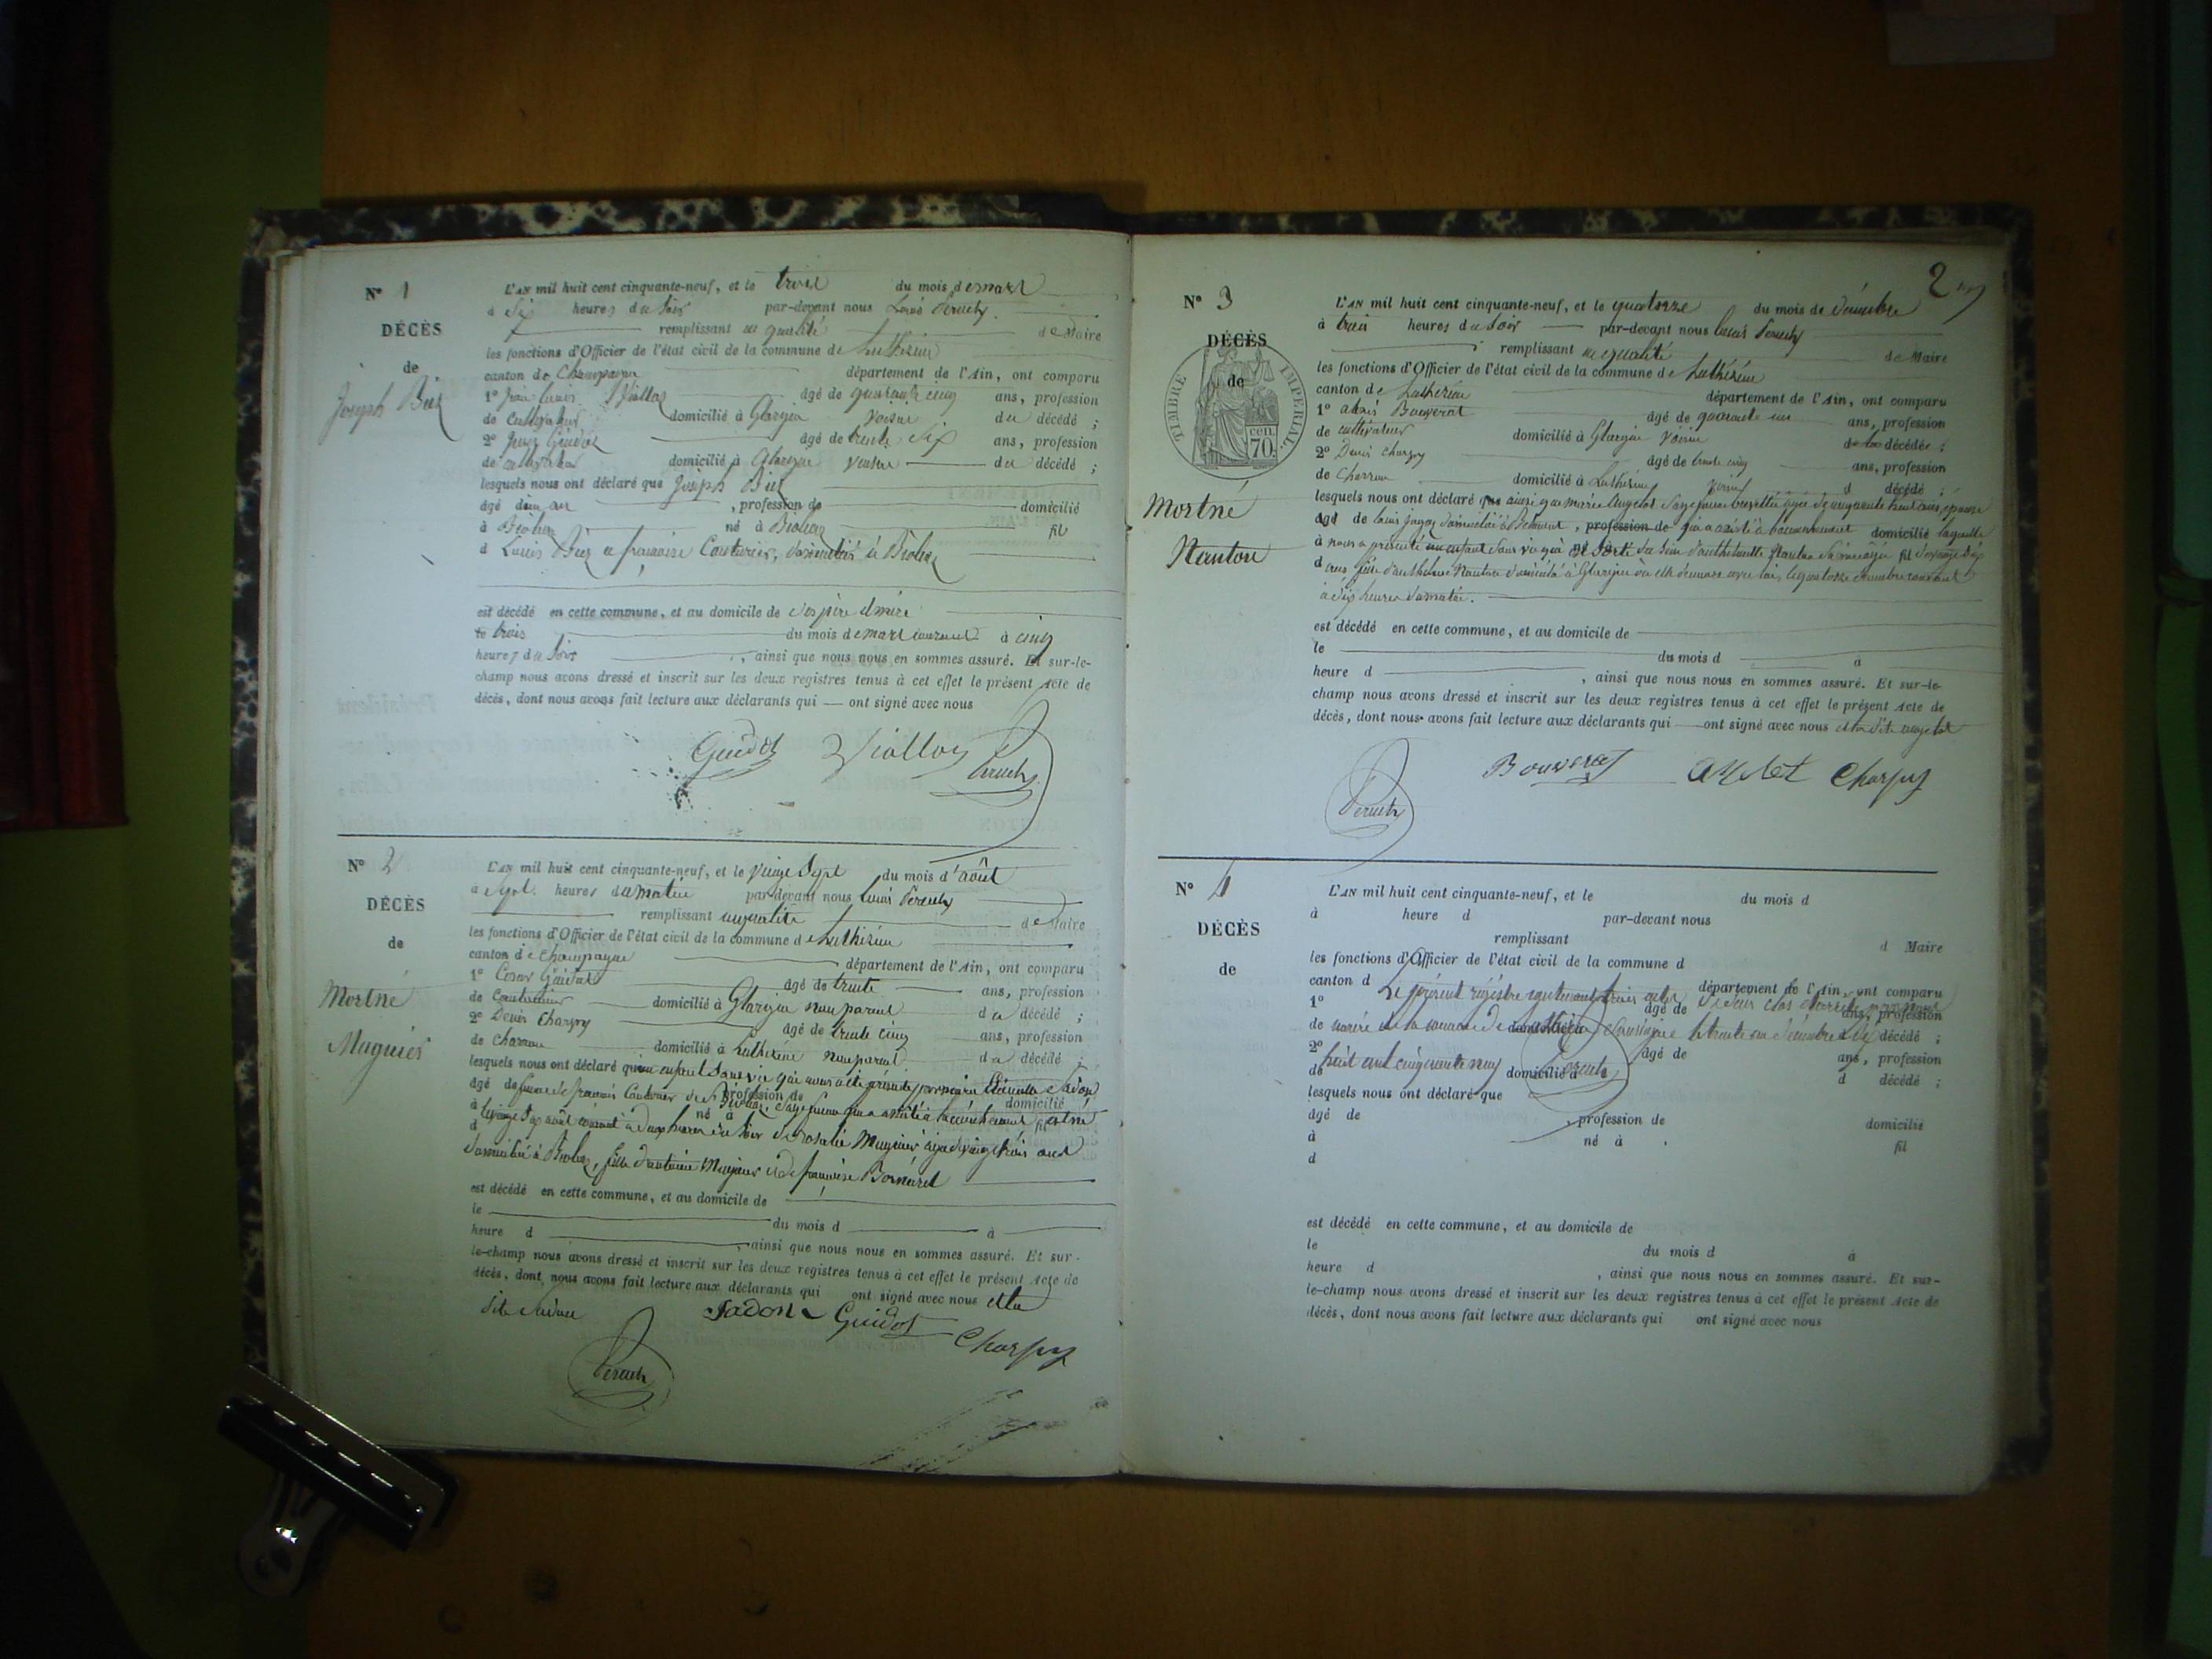 N° 1
DÉCÈS
de
Joseph Biez
L'AN mil huit cent cinquante-neuf, et le trois du mois de mars
à six heures du soir par-devant nous Louis Peruchy
remplissant en qualité de Maire
les fonctions d'Officier de l'état civil de la commune de Luthézieu
canton de Champagne département de l'Ain, ont comparu
1° jean louis Viollay âgé de quarante cinq ans, profession
de cultivateur domicilié à Glargin voisin du décédé ;
2° Guidot âgé de trente six ans, profession
de cultivateur domicilié à Glargin voisin du décédé ;
lesquels nous ont déclaré que Joseph Biez
âgé d'un an , profession de domicilié
à Bioleaz né à Bioleaz fil
d Louis Biez et françoise Couturier, domiciliés à Bioleaz
est décédé en cette commune, et au domicile de ses père et mère
le trois du mois de mars courant à cinq
heures du soir , ainsi que nous nous en sommes assuré. Et sur-le-
champ nous avons dressé et inscrit sur les deux registres tenus à cet effet le présent Acte de
décès, dont nous avons fait lecture aux déclarants qui — ont signé avec nous
Guidot Viollay Peruchy
N° 2
DÉCÈS
de
Mortné
Muguies
L'AN mil huit cent cinquante-neuf, et le vingt sept du mois d'août
à sept heures du matin par-devant nous Louis Peruchy
remplissant en qualité de Maire
les fonctions d'Officier de l'état civil de la commune de Luthézieu
canton de Champagne département de l'Ain, ont comparu
1° Cesar Guidot âgé de trente ans, profession
de domicilié à Glargin non parent du décédé ;
2° Denis Charpy âgé de trente cinq ans, profession
de Charron domicilié à Luthézieu non parent du décédé ;
lesquels nous ont déclaré qu'un enfant sans vie qui nous a été présenté par Sadon
âgé de femme de françois Couturier de Bioleaz profession de sage femme qui a assisté à l'accouchement domicilié
à le vingt six août courant à deux heures du soir né à de rosalie Muguies âgée de vingt trois ans fil
d
domiciliée à Bioleaz, fille d'antoine Muguies et de françoise Bornarel
est décédé en cette commune, et au domicile de
le du mois d à
heure d , ainsi que nous nous en sommes assuré. Et sur-
le-champ nous avons dressé et inscrit sur les deux registres tenus à cet effet le présent Acte de
décès, dont nous avons fait lecture aux déclarants qui ont signé avec nous et la
dite Sadon Guidot
Charpy
Peruchy
2
N° 3
DÉCÈS
de
TIMBRE IMPÉRIAL.
70 cen.
Mortné
Nanton
L'AN mil huit cent cinquante-neuf, et le quatorze du mois de décembre
à trois heures du soir par-devant nous Louis Peruchy
remplissant en qualité de Maire
les fonctions d'Officier de l'état civil de la commune de Luthézieu
canton de Luthézieu département de l'Ain, ont comparu
1° Bouverat âgé de quarante un ans, profession
de cultivateur domicilié à Glargin voisin de la décédée ;
2° Denis Charpy âgé de trente cinq ans, profession
de Charron domicilié à Luthézieu voisin d décédé ;
lesquels nous ont déclaré que marie sage femme âgée de cinquante ans, épouse
âgé de louis domicilié à , profession de qui a assisté à l'accouchement domicilié laquelle
à nous a présenté un enfant sans vie qui est sorti du sein Nanton fil
d ans, fille d'anthelme Nanton domicilié à Glargin où elle demeure avec lui, le quatorze décembre courant
à dix heures du matin.
est décédé en cette commune, et au domicile de
le du mois d à
heure d , ainsi que nous nous en sommes assuré. Et sur-le-
champ nous avons dressé et inscrit sur les deux registres tenus à cet effet le présent Acte de
décès, dont nous avons fait lecture aux déclarants qui — ont signé avec nous et la dite
Bouverat Charpy
Peruchy
N° 4
DÉCÈS
de
L'AN mil huit cent cinquante-neuf, et le du mois d
à heure d par-devant nous
remplissant d Maire
les fonctions d'Officier de l'état civil de la commune d
canton d département de l'Ain, ont comparu
1° Le présent régistre contenant trois actes de décès clos et arrêté âgé de ans, profession
de maire de la commune de domicilié à Luthézieu le trente un décembre mil décédé ;
2° huit cent cinquante neuf âgé de ans, profession
de domicilié à Peruchy d décédé ;
lesquels nous ont déclaré que
âgé de , profession de domicilié
à né à fil
d
est décédé en cette commune, et au domicile de
le du mois d à
heure d , ainsi que nous nous en sommes assuré. Et sur-
le-champ nous avons dressé et inscrit sur les deux registres tenus à cet effet le présent Acte de
décès, dont nous avons fait lecture aux déclarants qui ont signé avec nous